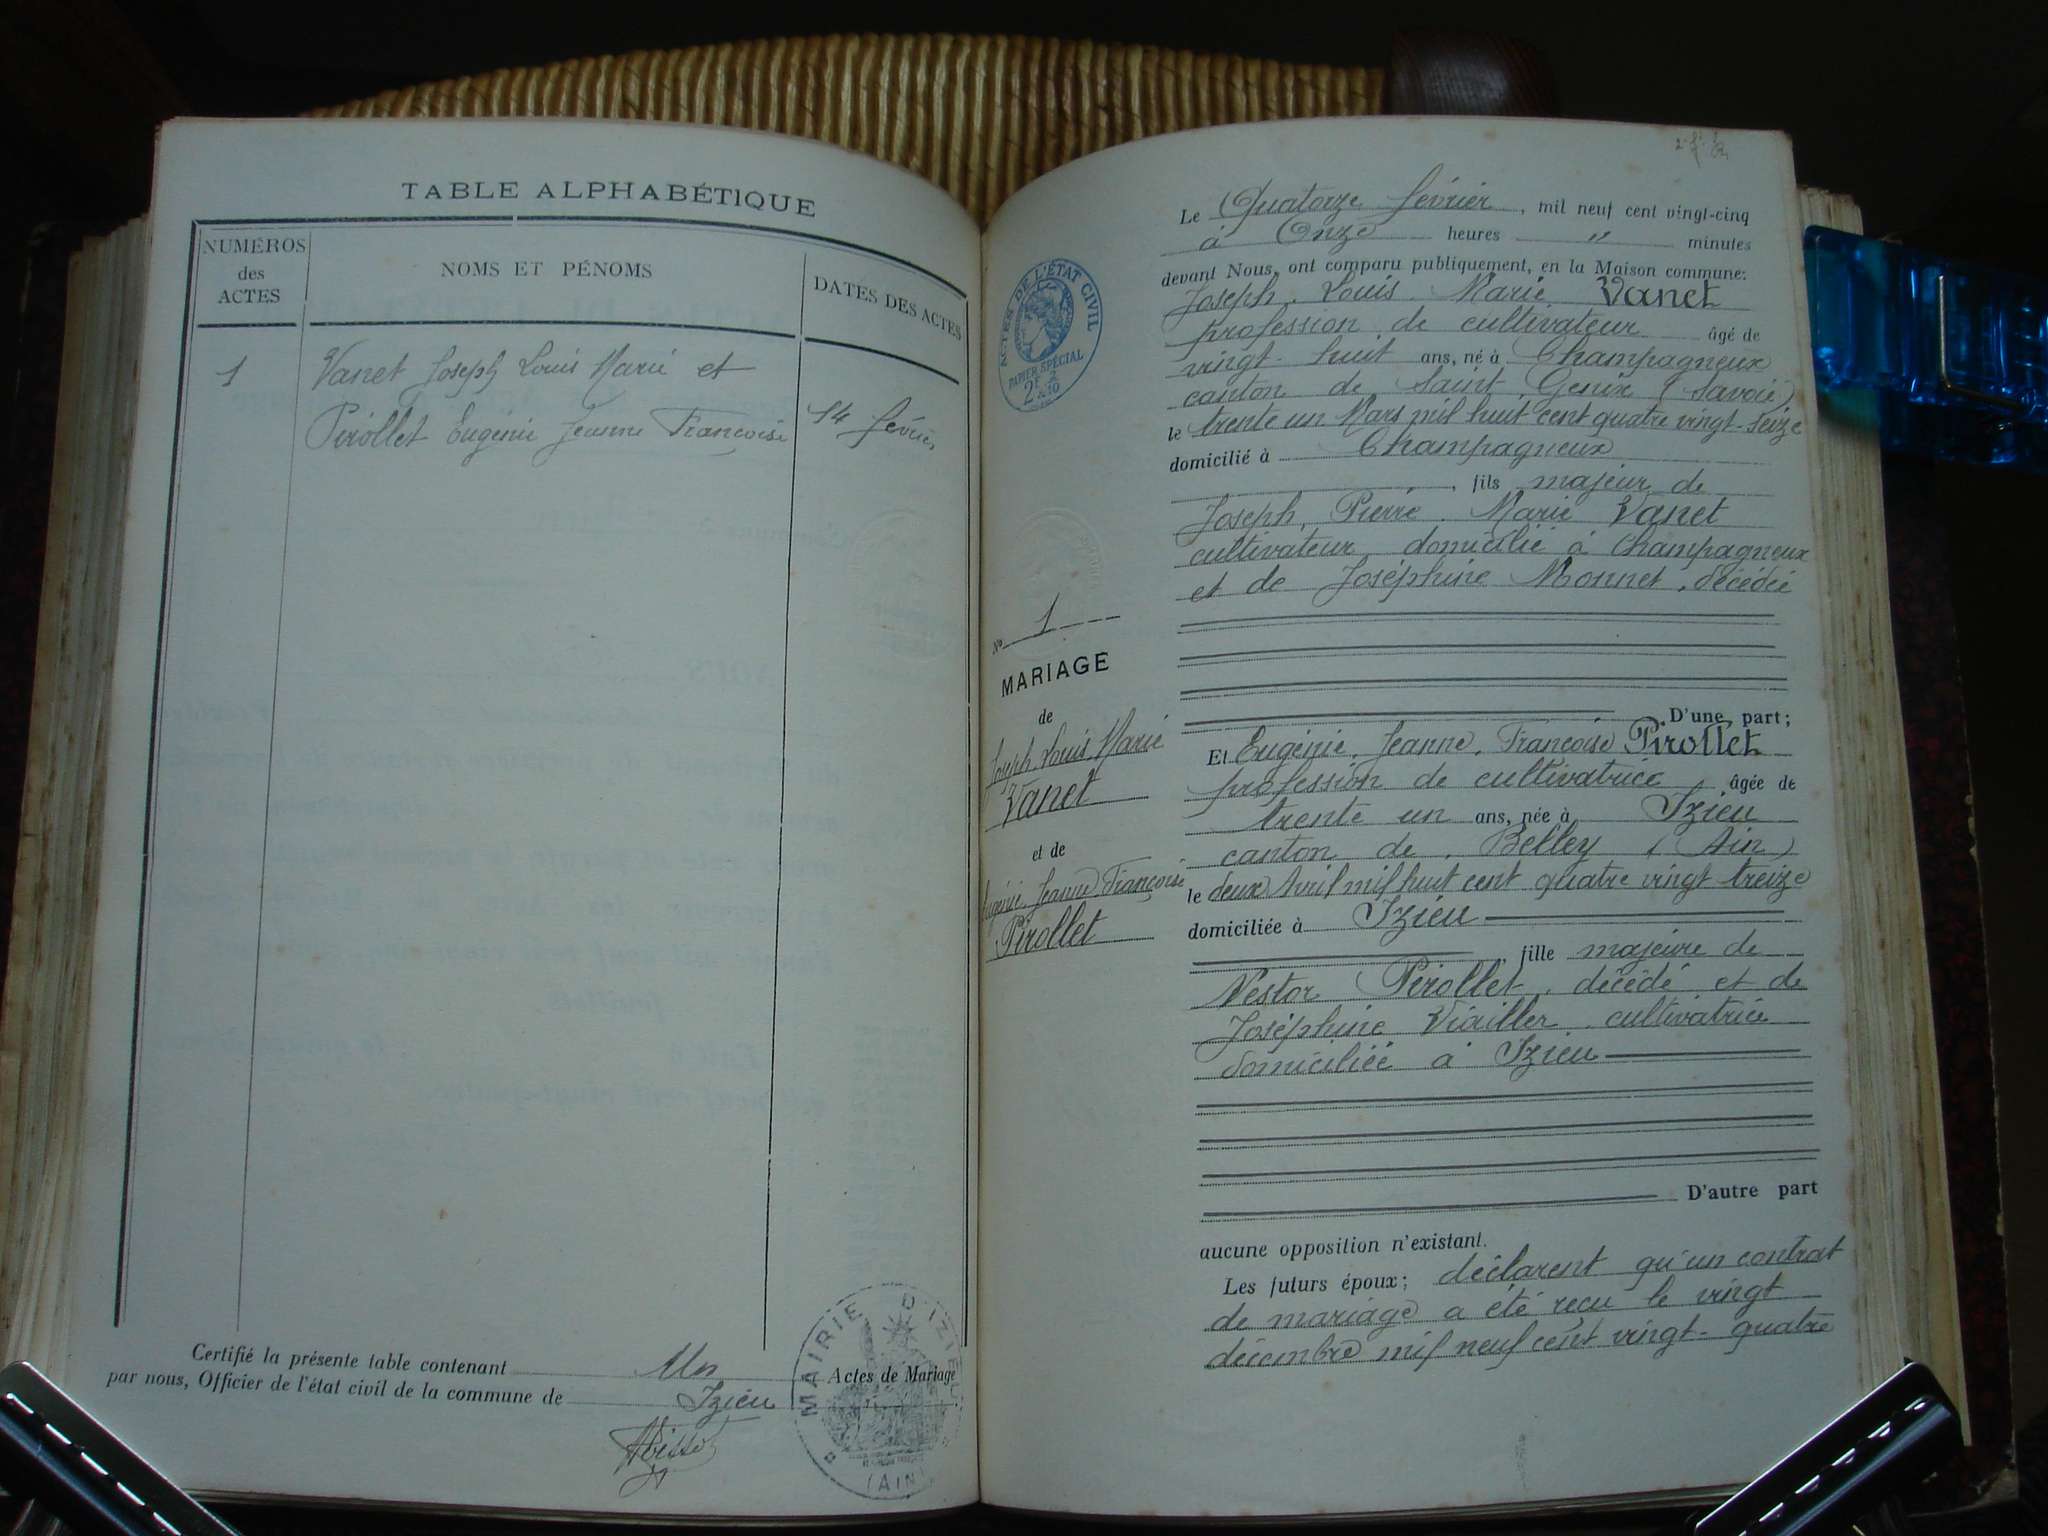 TABLE ALPHABÉTIQUE
NUMÉROS
des
ACTES
NOMS ET PÉNOMS
DATES DES ACTES
1
Vanet Joseph Louis Marie et
Pirollet Eugénie Jeanne Françoise
14 février
Certifié la présente table contenant Un Actes de Mariage
par nous, Officier de l'état civil de la commune de Izieu
MAIRIE D'IZIEU
(AIN)
ACTES DE L'ÉTAT CIVIL
PAPIER SPÉCIAL
No 1
MARIAGE
de
Joseph, Louis, Marie
Vanet
et de
Eugénie, Jeanne, Françoise
Pirollet
Le Quatorze février, mil neuf cent vingt-cinq
à Onze heures " minutes
devant Nous, ont comparu publiquement, en la Maison commune:
Joseph, Louis, Marie Vanet
profession de cultivateur âgé de
vingt-huit ans, né à Champagneux
canton de Saint Genix (Savoie)
le trente un Mars mil huit cent quatre vingt-seize
domicilié à Champagneux
, fils majeur de
Joseph, Pierre, Marie Vanet
cultivateur, domicilié à Champagneux
et de Joséphine Monnet, décédée
D'une part;
Et Eugénie, Jeanne, Françoise Pirollet
profession de cultivatrice âgée de
trente un ans, née à Izieu
canton de Belley (Ain)
le deux Avril mil huit cent quatre vingt treize
domiciliée à Izieu
, fille majeure de
Nestor Pirollet, décédé et de
Joséphine Viailler, cultivatrice
domiciliée à Izieu
D'autre part
aucune opposition n'existant.
Les futurs époux; déclarent qu'un contrat
de mariage a été reçu le vingt
décembre mil neuf cent vingt-quatre